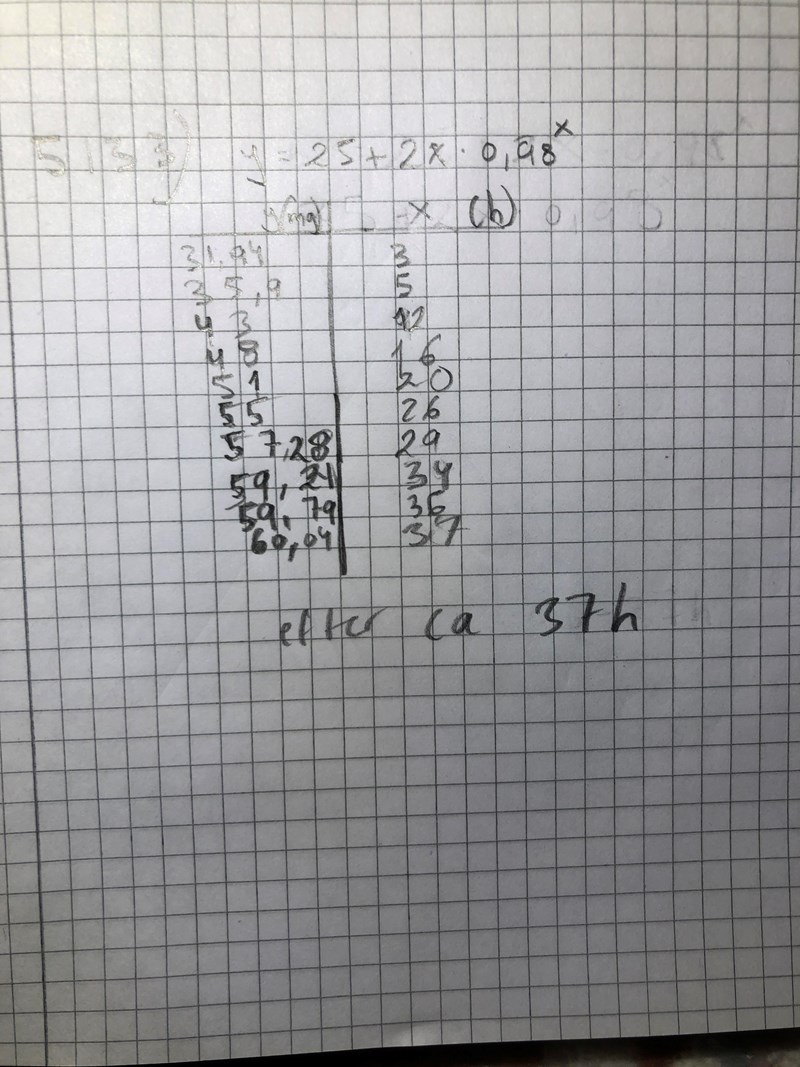 5133) y = 25 + 2x · 0,98^x
y(mg) x (h)
31,94 3
35,9 5
43 12
48 16
51 20
55 26
57,28 29
59,21 34
59,79 36
60,04 37
efter ca 37h